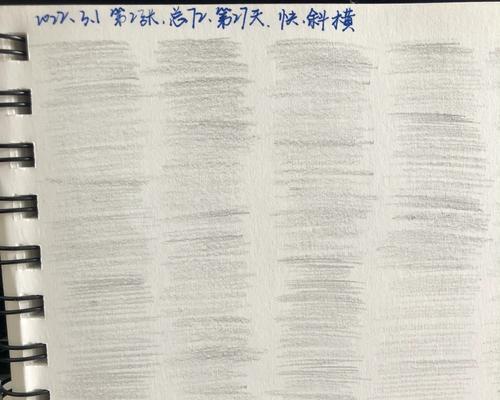 2022.3.1 第23张.总72.第27天.快.斜横